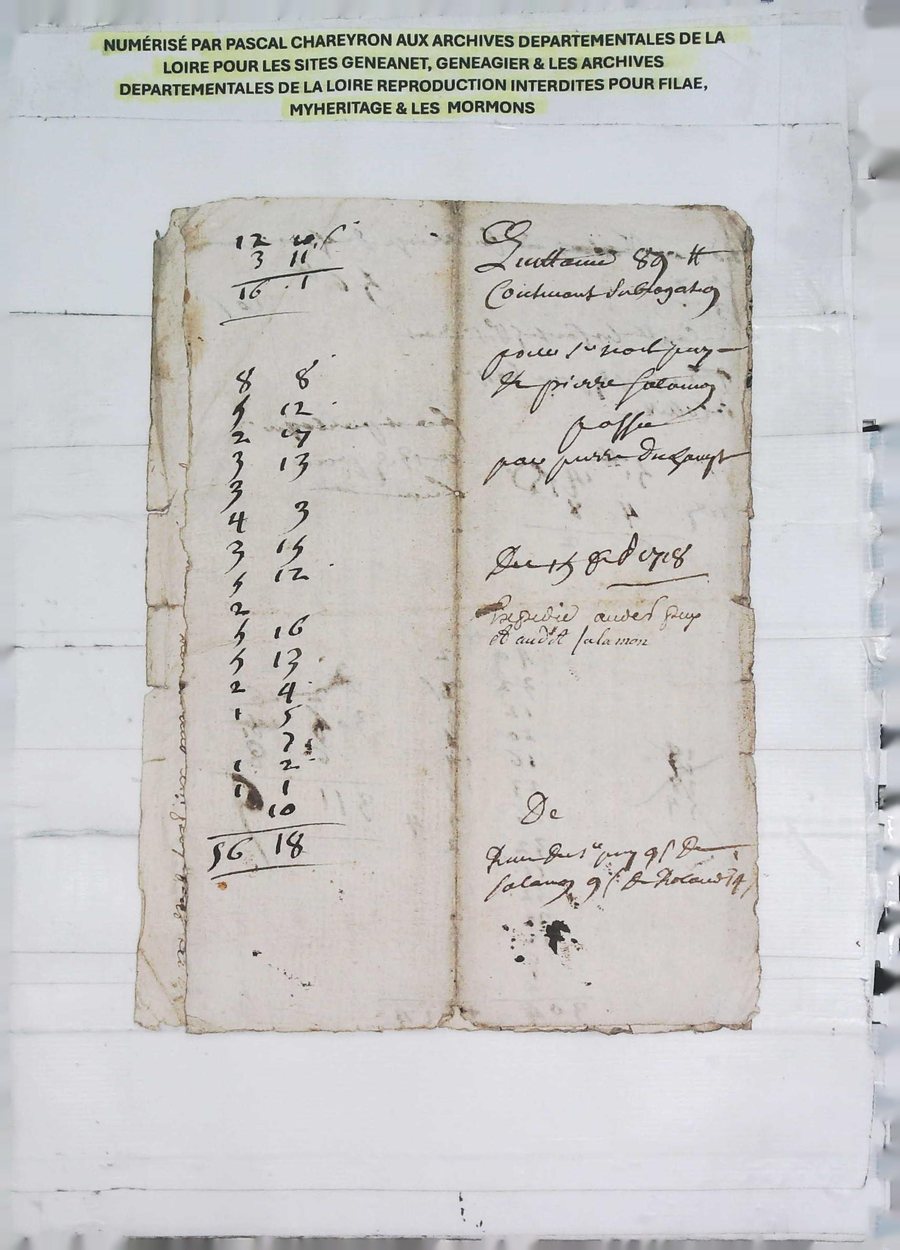 NUMÉRISÉ PAR PASCAL CHAREYRON AUX ARCHIVES DEPARTEMENTALES DE LA
LOIRE POUR LES SITES GENEANET, GENEAGIER & LES ARCHIVES
DEPARTEMENTALES DE LA LOIRE REPRODUCTION INTERDITES POUR FILAE,
MYHERITAGE & LES MORMONS
12
3 11
16 . 1
8 8
5 12
2 17
3 13
3
4 3
3 15
5 12
2
5 16
5 13
2 4
1 5
7
1 2
1 1
10
56 18
Quittance 89 tt
Contenant Subrogation
pour Sr noel puy
de pierre Salamon
passé
par pierre
Du 15 1718
Expedié
et audit Salamon
De
puy 9s De
Salamon 9s